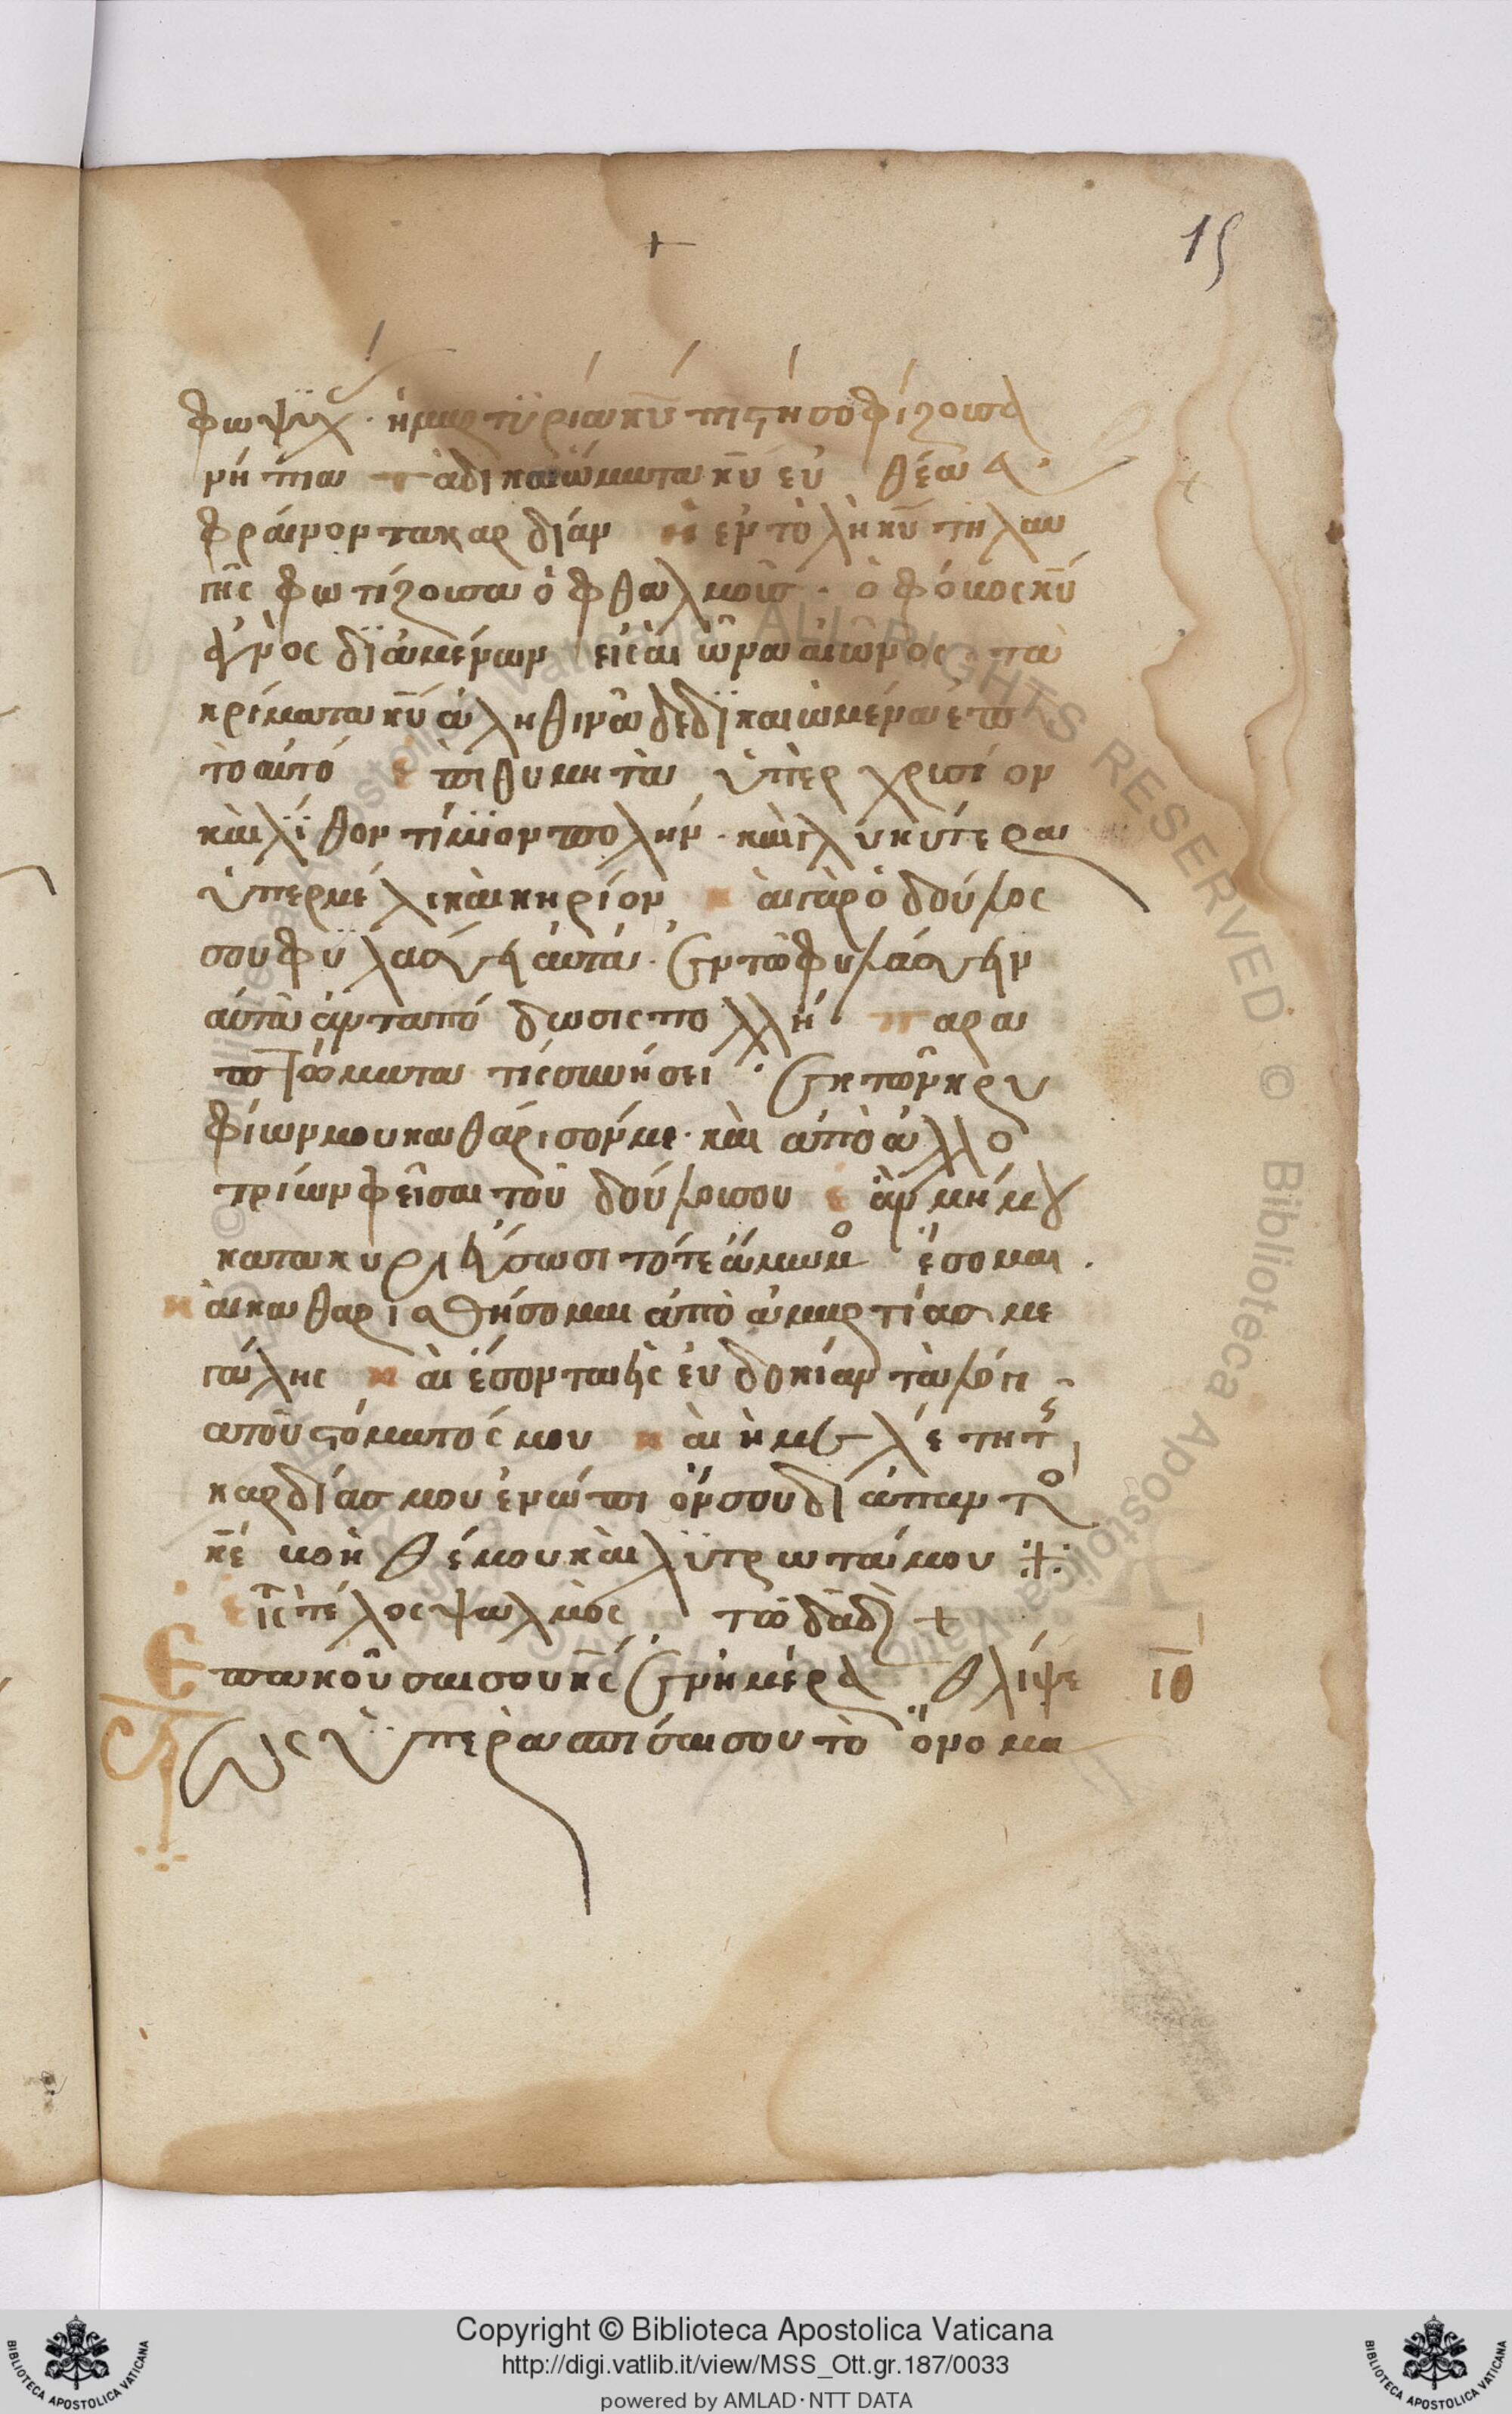 15
φων ψυχ. ἡ μαρτυρία κυ πιστὴ σοφίζουσα
νήπια τὰ δικαιώματα κυ ευθέα ευ
φραίνοντα καρδίαν ἡ εντολὴ κυ τηλαυ
γῆς φωτίζουσα ὀφθαλμοὺς. ὁ φόβος κυ
ἁγνὸς διαμένων εἰς αἰῶνα αἰῶνος τὰ
κρίματα κυ ἀληθινὰ δεδικαιωμένα ἐπι
τὸ αὐτό ἐπιθυμητὰ ὑπὲρ χρισίον
καὶ λίθον τίμιον πολήν. καὶ γλυκύτερα
ὑπερ μέλι καὶ κηρίον καὶ γὰρ ὁ δούλος
σου φυλάσσει αὐτά. ἐν τῶ φυλάσσειν
αὐτὰ ἀνταπόδωσις πολλή. παρα
πτώματα τίς συνήσει. ἐκ τῶν κρυ
φίων μου καθάρισόν με. καὶ ἀπὸ ἀλλο
τρίων φεῖσαι τοῦ δούλου σου ἐὰν μή μου
κατακυριεύσωσι τότε ἄμωμο ἔσομαι.
καὶ καθαρισθήσομαι ἀπὸ ἁμαρτίας με
γάλης καὶ ἔσονται εἰς ευδοκίαν τὰ λόγι
α τοῦ στόματός μου καὶ ἡ μελέτη τῆς
καρδίας μου ἐνώπιόν σου διάπαντο
κε βοηθέ μου καὶ λυτρωτά μου
εἰς τὸ τέλος ψαλμὸς τῶ δαδ +
Επακούσαι σου κς ἐν ἡμέρα θλίψε ιθ
ως ὑπερασπίσαι σου τὸ ὄνομα
BIBLIOTECA APOSTOLICA VATICANA
Copyright © Biblioteca Apostolica Vaticana
http://digi.vatlib.it/view/MSS_Ott.gr.187/0033
powered by AMLAD·NTT DATA
BIBLIOTECA APOSTOLICA VATICANA